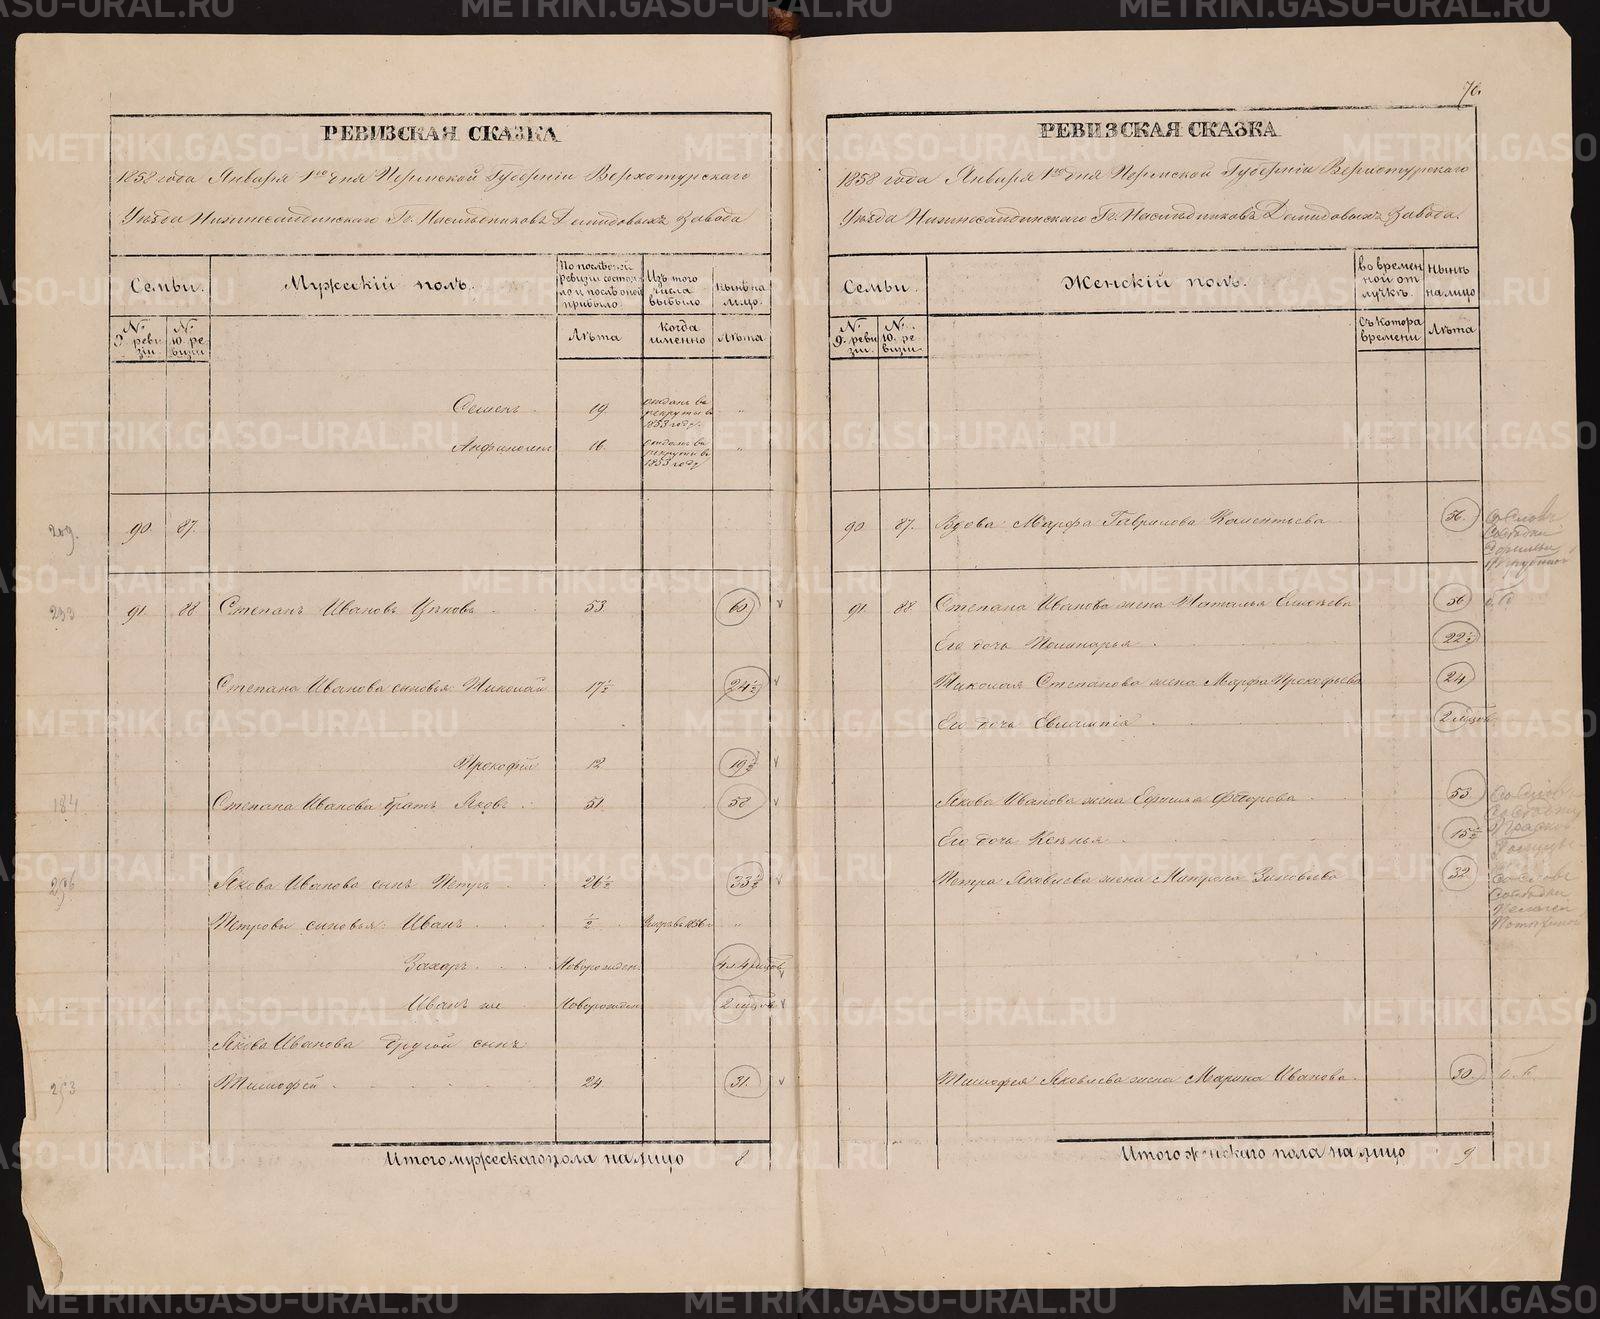 76.
РЕВИЗСКАЯ СКАЗКА
1858 года Января 1го дня Пермской Губерніи Верхотурскаго
Уѣзда Нижнесалдинскаго Гг. Наслѣдниковъ Демидовыхъ завода
Семьи. Мужескій полъ. По послѣдней ревизіи состояло и послѣ оной прибыло Изъ того числа выбыло нынѣ на лицо.
№ 9 ревизіи. № 10. ревизіи Лѣта когда именно Лѣта.
Семенъ 19. отданъ въ рекруты въ 1853 году. "
Анфиногенъ 16. отданъ въ рекруты въ 1853 году "
209. 90. 87.
233 91. 88 Степанъ Ивановъ 53. 60.
Степана Иванова сыновья: Николай 17½ 24½
Прокофій 12 19½
184 Степана Иванова братъ Яковъ 51. 58
296 Якова Иванова сынъ Петръ 26½ 33½
Петровы сыновья: Иванъ ½ "
Захаръ Новорожден.
Иванъ же Новорожден
Якова Иванова другой сынъ
253 Тимофей 24 31.
Итого мужескаго пола на лицо 8
РЕВИЗСКАЯ СКАЗКА
1858 года Января 1го дня Пермской Губерніи Верхотурскаго
Уѣзда Нижнесалдинскаго Гг. Наслѣдниковъ Демидовыхъ завода.
Семьи. Женскій полъ. во временной отлучкѣ. нынѣ на лицо
№ 9. ревизіи. № 10. ревизіи Съ котора времени Лѣта
90 87. Вдова Марфа Гаврилова 56.
91. 88. Степана Иванова жена Наталья 56
Его дочь 22½
Николая Степанова жена Марфа Прокофьева 24
Его дочь Евлампія
Якова Иванова жена Ефимья Федорова 53.
Его дочь Ксенья 15½
Петра Яковлева жена Зиновьева 32
Тимофея Яковлева жена Марина Иванова 30.
Итого женскаго пола на лицо 9
METRIKI.GASO-URAL.RU